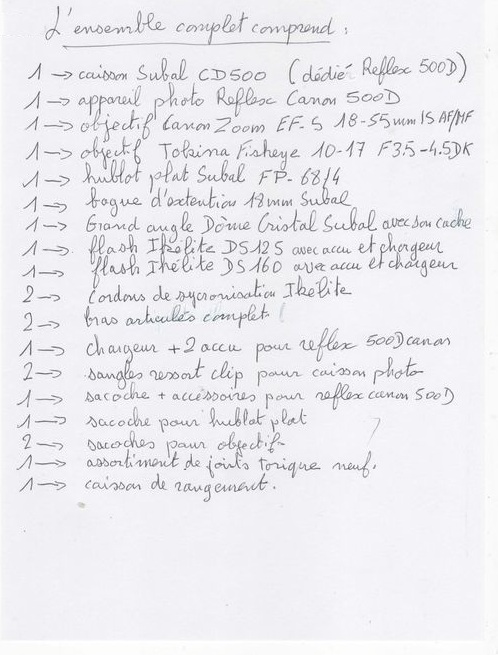 L'ensemble complet comprend :
1 → caisson Subal CD500 (dédié Reflex 500D)
1 → appareil photo Reflex Canon 500D
1 → objectif Canon Zoom EF-S 18-55mm IS AF/MF
1 → objectif Tokina Fisheye 10-17 F3.5-4.5DX
1 → hublot plat Subal FP-68/4
1 → bague d'extention 18mm Subal
1 → Grand angle Dôme Cristal Subal avec son cache
1 → flash Ikélite DS125 avec accu et chargeur
1 → flash Ikélite DS160 avec accu et chargeur
2 → Cordons de sycronisation Ikélite
2 → bras articulés complet
1 → chargeur + 2 accu pour reflex 500D canon
2 → sangles ressort clip pour caisson photo
1 → sacoche + accessoires pour reflex canon 500D
1 → sacoche pour hublot plat
2 → sacoches pour objectif
1 → assortiment de joints torique neuf.
1 → caisson de rangement.